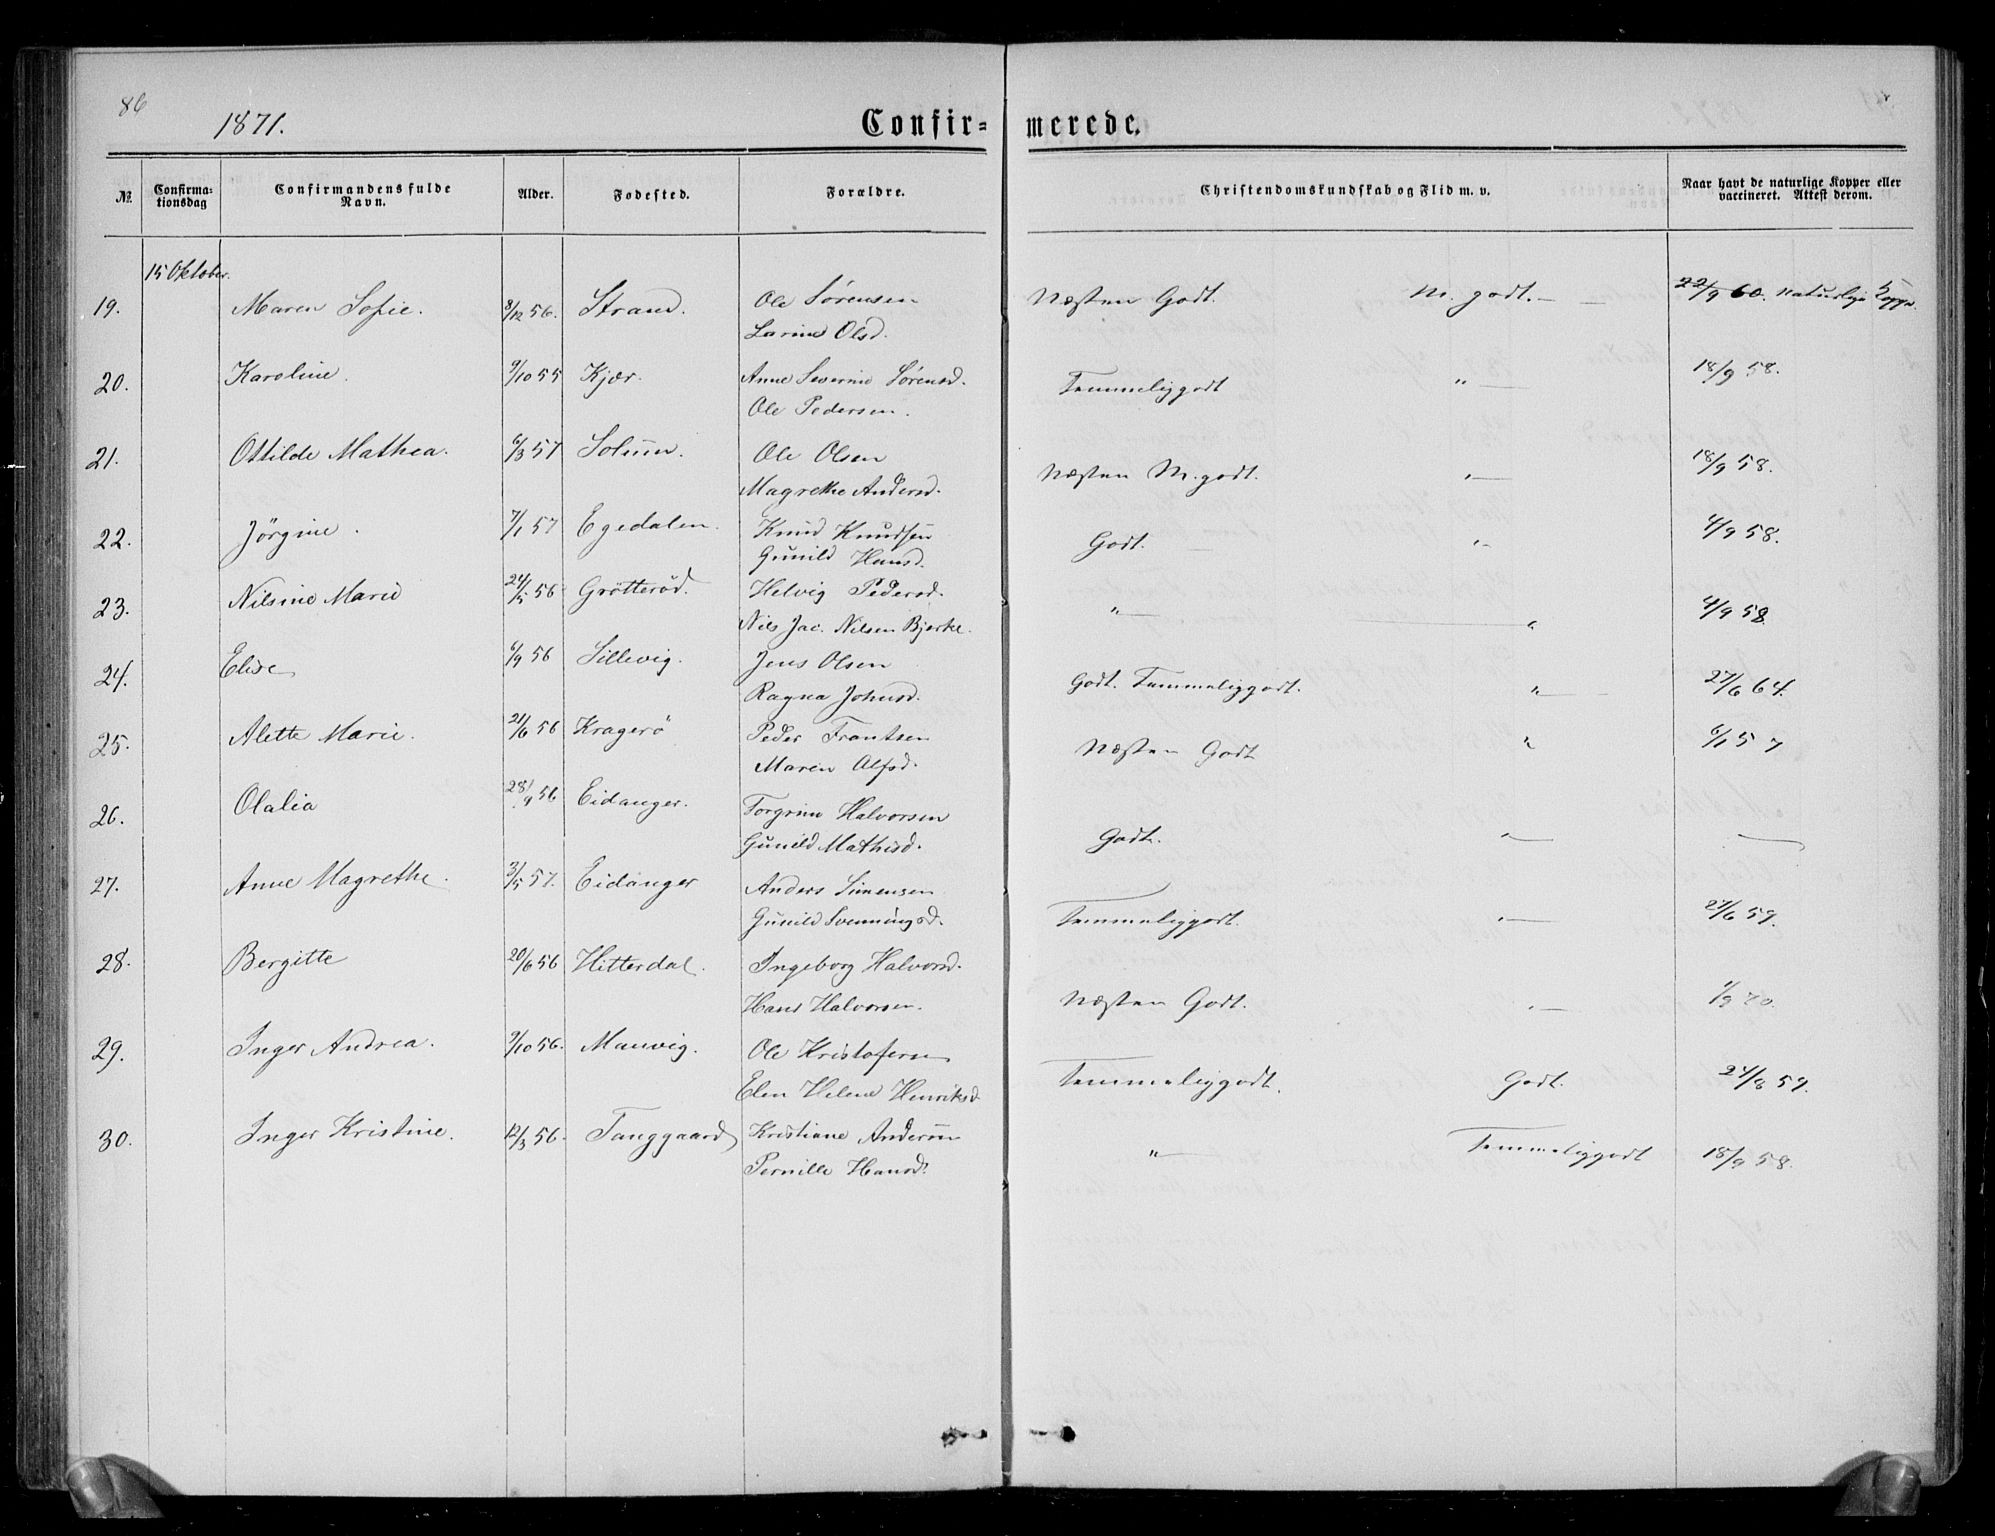 86
1871.
Confir= merede.
№ Confirma-tionsdag Confirmandens fulde Navn. Alder. Fødested. Forældre. Christendomskundskab og Flid m. v. Naar havt de naturlige Kopper eller vaccineret. Attest derom.
15 Oktober.
19. Maren Sofie. 8/12 56. Strand. Ole Sørensen Næsten Godt. M. godt. — — 22/9 60. naturlige Kopper.
Larine Olsd.
20. Karoline. 9/10 55 Kjær. Anne Severine Sørensd. Temmeliggodt " — 18/9 58.
Ole Pedersen.
21. Ottilde Mathea. 6/3 57 Solum. Ole Olsen Næsten M. godt. " — 18/9 58.
Magrethe Andersd.
22. Jörgine. 7/1 57 Egedalen. Knud Knudsen Godt. — " — 4/9 58.
Gunild Hansd.
23. Nilsine Marie 24/5 56 Grötteröd. Helvig Pedersd. " — " 4/9 58
Nils Jac. Nilsen Bjerke.
24. Elise 6/9 56 Sillevig. Jens Olsen Godt. Temmeliggodt. " — 27/6 64.
Ragna Johnsd.
25. Alette Marie. 21/6 56 Kragerö Peder Frantsen Næsten Godt " 6/1 57
Maren Alfsd.
26. Olalia 28/9 56 Eidanger. Torgrim Halvorsen Godt. " — —
Gunild Mathisd.
27. Anne Magrethe. 3/5 57. Eidanger Anders Simensen Temmeliggodt. " — 27/6 59.
Gunild Svenningsd.
28. Bergitte 20/6 56 Hitterdal. Ingeborg Halvorsd. Næsten Godt. " — 1/9 70.
Hans Halvorsen.
29. Inger Andrea. 9/10 56. Mauvig. Ole Kristofersen Temmeliggodt. Godt. 24/8 59.
Elen Helene Henriksd.
30. Inger Kristine. 12/3 56. Tanggaard Kristiane Andersen " — Temmeliggodt 18/9 58.
Pernille Hansd.